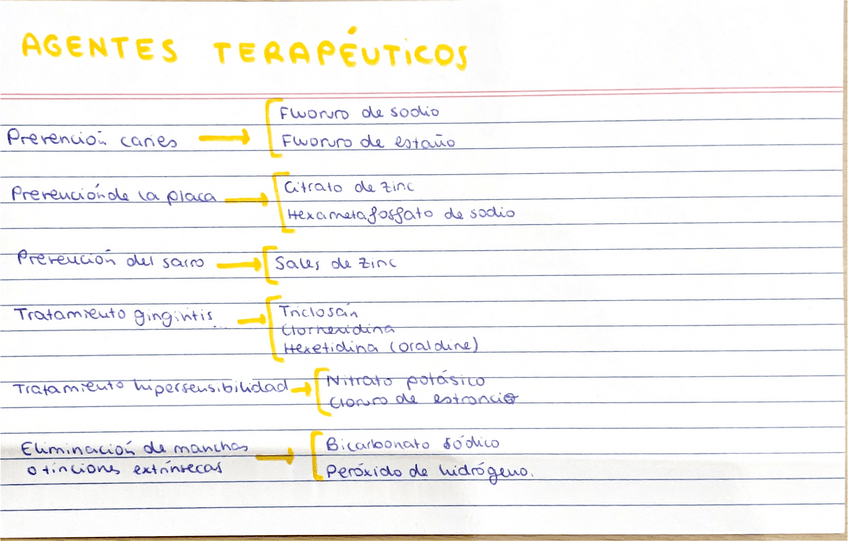 AGENTES TERAPÉUTICOS
Fluoruro de sodio
Prevención caries
Fluoruro de estaño
Prevención de la placa
Citrato de zinc
Hexametafosfato de sodio
Prevención del sarro
Sales de zinc
Tratamiento gingivitis
Triclosán
Clorhexidina
Hexetidina (oraldine)
Tratamiento hipersensibilidad
Nitrato potásico
Cloruro de estroncio
Eliminación de manchas
o tinciones extrínsecas
Bicarbonato sódico
Peróxido de hidrógeno.